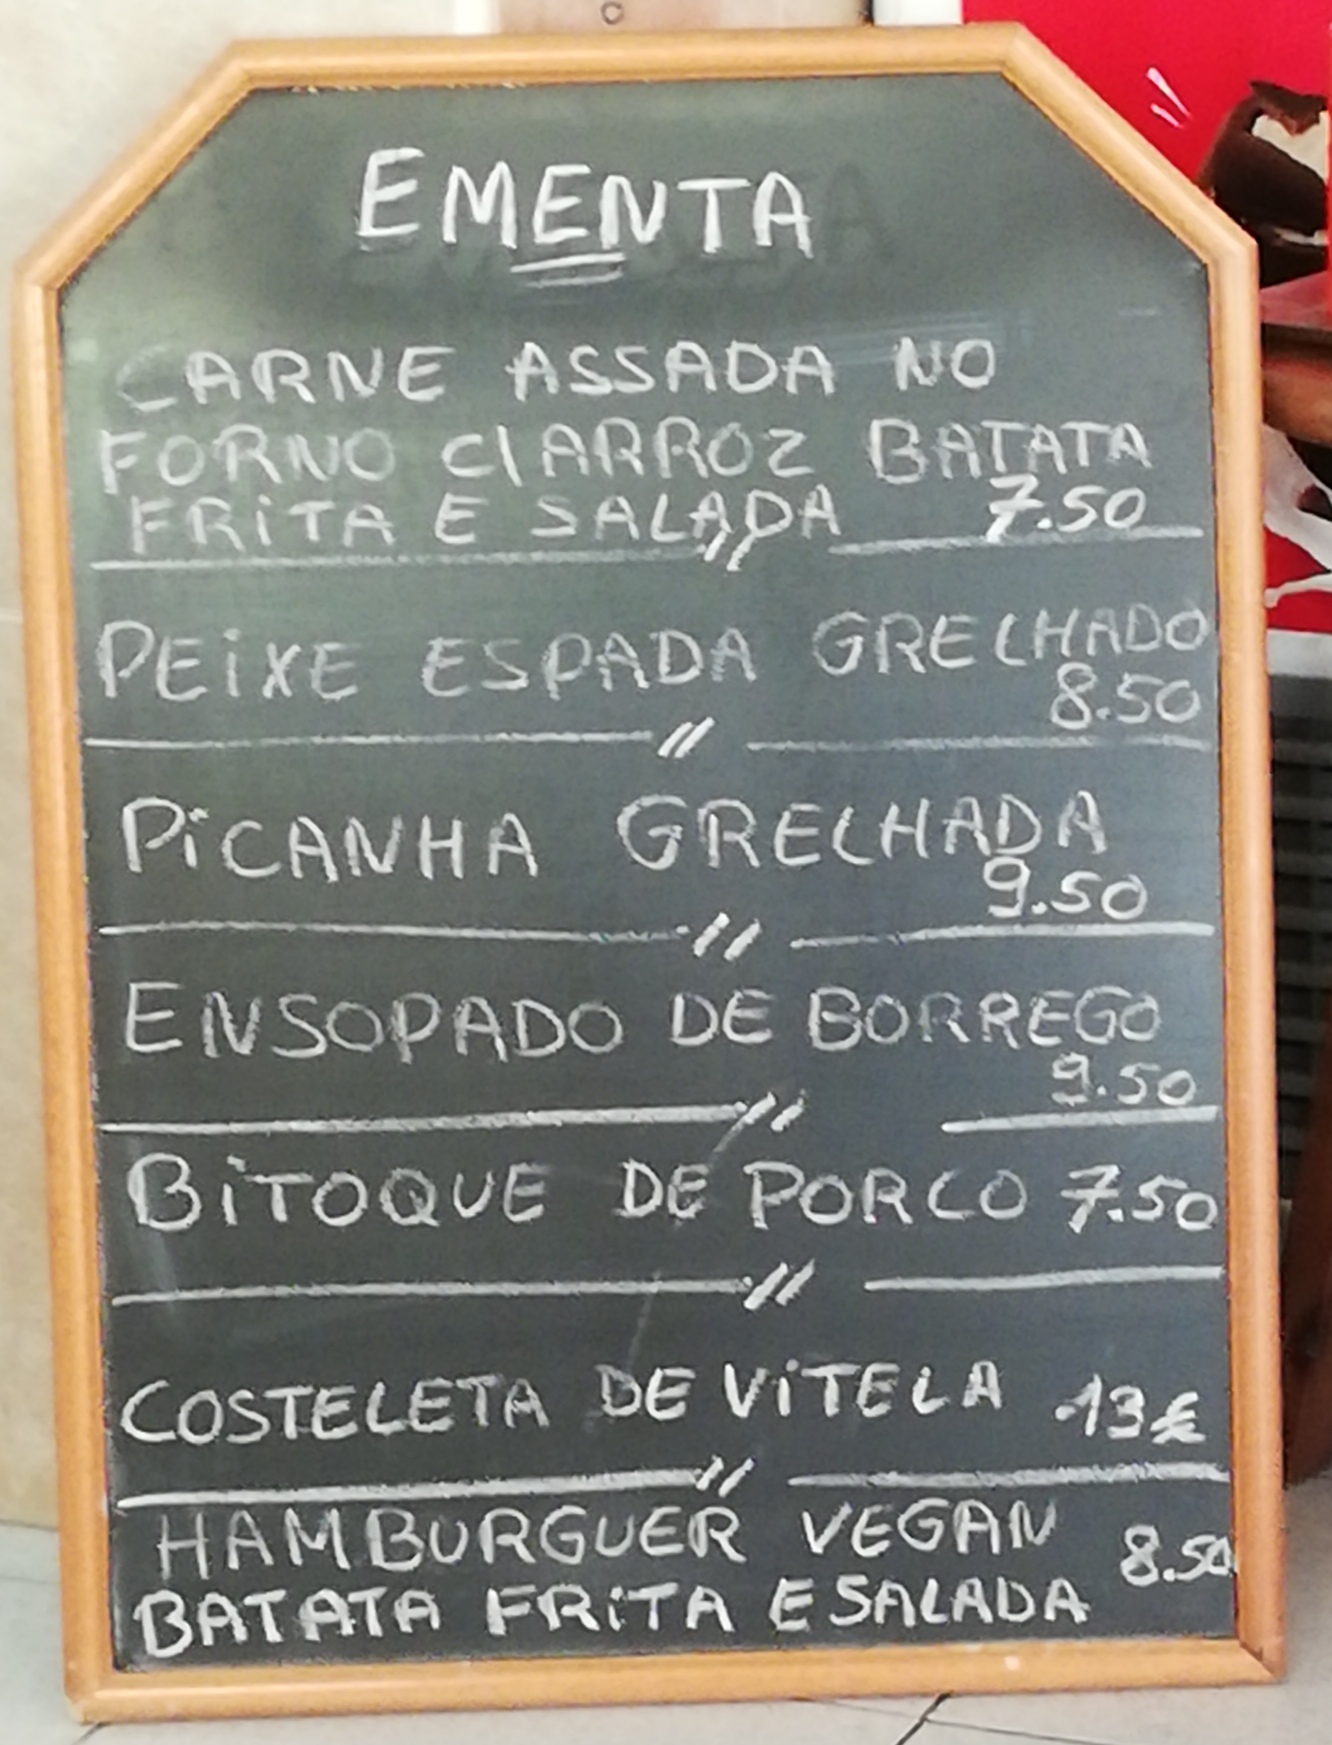 EMENTA
CARNE ASSADA NO
FORNO C/ ARROZ BATATA
FRITA E SALADA 7.50
PEIXE ESPADA GRELHADO
8.50
PICANHA GRELHADA
9.50
ENSOPADO DE BORREGO
9.50
BITOQUE DE PORCO 7.50
COSTELETA DE VITELA 13€
HAMBURGUER VEGAN 8.50
BATATA FRITA E SALADA